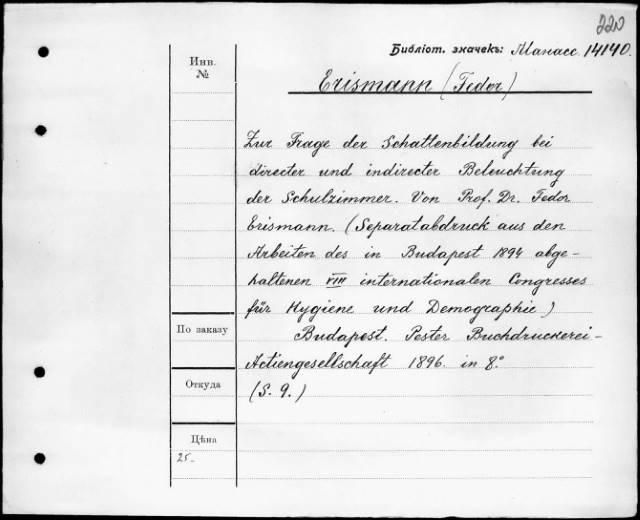 220
Библіот. значекъ: Манасс. 14140.
Инв.
№
Erismann (Fedor)
Zur Frage der Schattenbildung bei
directer und indirecter Beleuchtung
der Schulzimmer. Von Prof. Dr. Fedor
Erismann. (Separatabdruck aus den
Arbeiten des in Budapest 1894 abge-
haltenen VIII internationalen Congresses
für Hygiene und Demographie)
Budapest. Pester Buchdruckerei-
Actiengesellschaft 1896. in 8.°
(S. 9.)
По заказу
Откуда
Цѣна
25.-